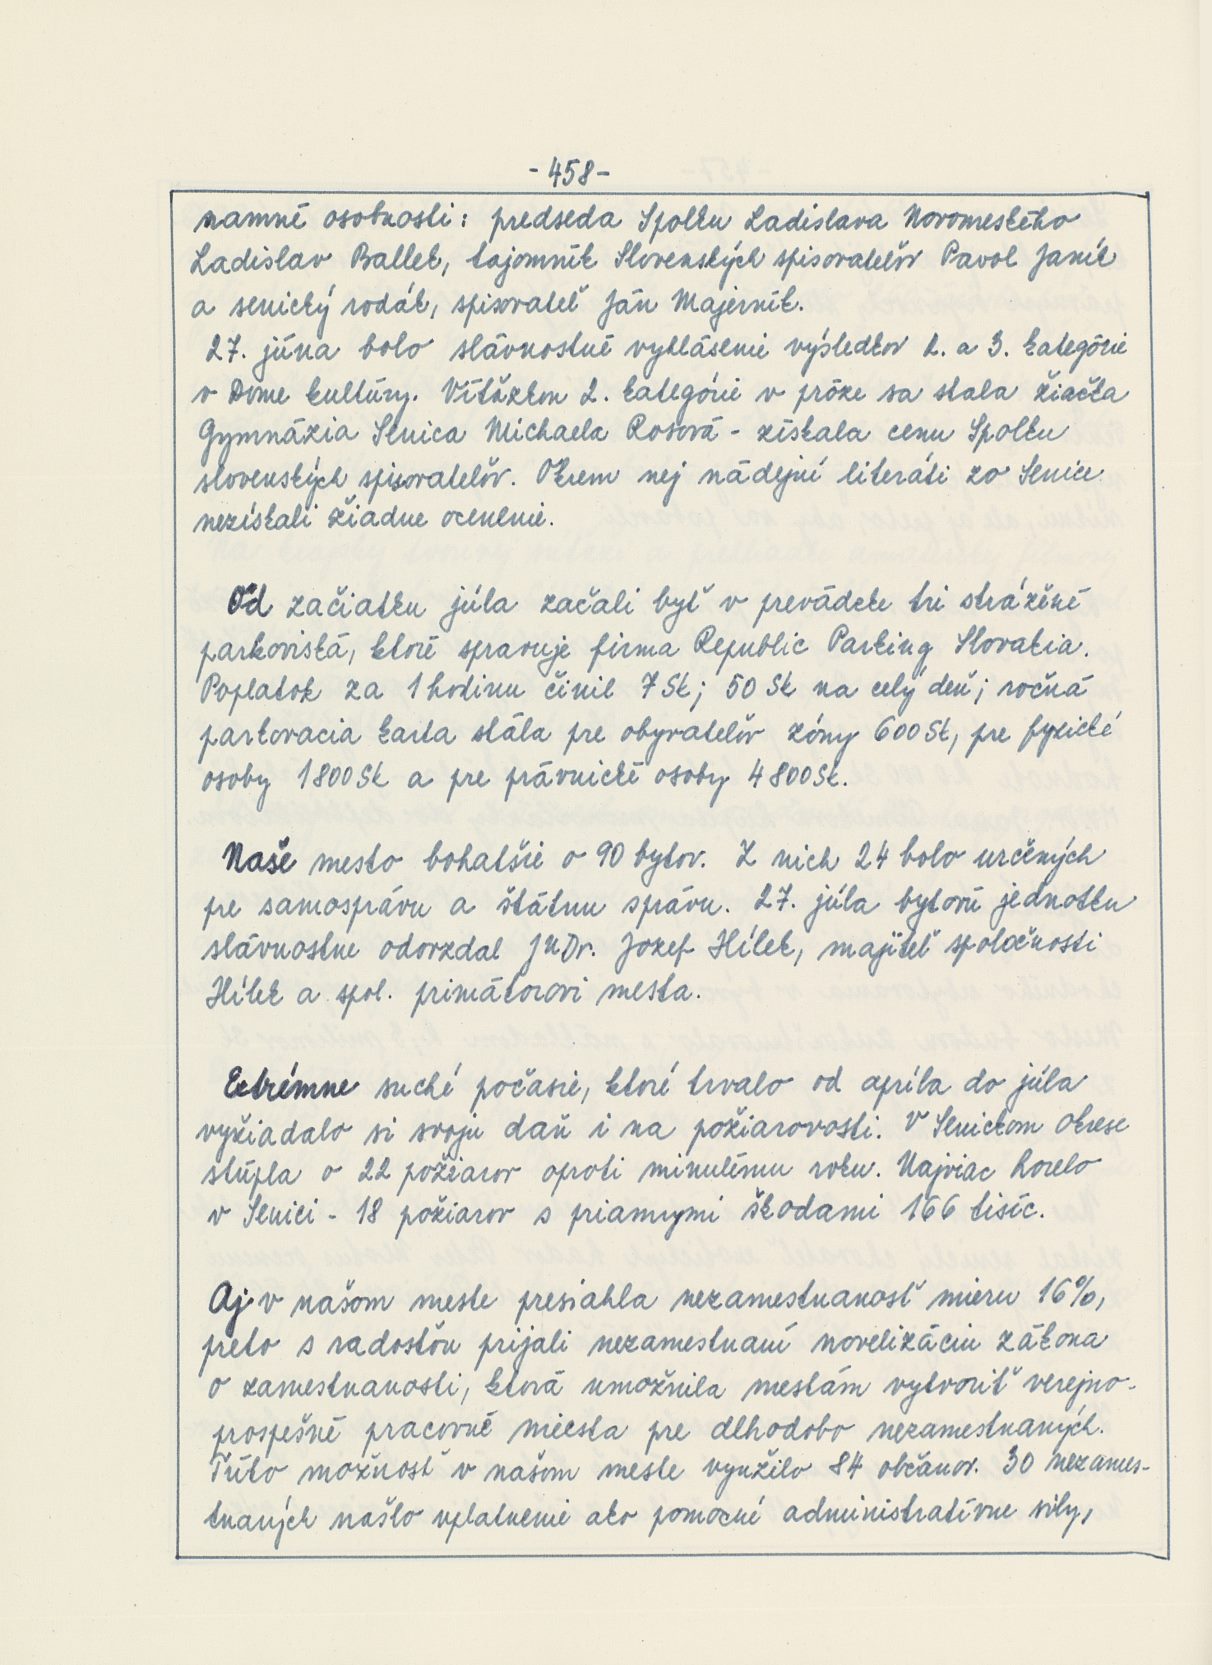 -458-
namné osobnosti: predseda Spolku Ladislava Novomeského
Ladislav Ballek, tajomník Slovenských spisovateľov Pavol Janík
a senický rodák, spisovateľ Ján Majerník.
27. júna bolo slávnostné vyhlásenie výsledkov 2. a 3. kategórie
v Dome kultúry. Víťazkou 2. kategórie v próze sa stala žiačka
Gymnázia Senica Michaela Rosová - získala cenu Spolku
slovenských spisovateľov. Okrem nej nádejní literáti zo Senice
nezískali žiadne ocenenie.
Od začiatku júla začali byť v prevádzke tri strážené
parkoviská, ktoré spravuje firma Republic Parking Slovakia.
Poplatok za 1 hodinu činil 7 Sk; 50 Sk na celý deň; ročná
parkovacia karta stála pre obyvateľov zóny 600 Sk, pre fyzické
osoby 1800 Sk a pre právnické osoby 4 800 Sk.
Naše mesto bohatšie o 90 bytov. Z nich 24 bolo určených
pre samosprávu a štátnu správu. 27. júla bytovú jednotku
slávnostne odovzdal JuDr. Jozef Hílek, majiteľ spoločnosti
Hílek a spol. primátorovi mesta.
Extrémne suché počasie, ktoré trvalo od apríla do júla
vyžiadalo si svoju daň i na požiarovosti. V Senickom okrese
stúpla o 22 požiarov oproti minulému roku. Najviac horelo
v Senici - 18 požiarov s priamymi škodami 166 tisíc.
Aj v našom meste presiahla nezamestnanosť mieru 16%,
preto s radosťou prijali nezamestnaní novelizáciu zákona
o zamestnanosti, ktorá umožnila mestám vytvoriť verejno-
prospešné pracovné miesta pre dlhodobo nezamestnaných.
Túto možnosť v našom meste využilo 84 občanov. 30 nezames-
tnaných našlo uplatnenie ako pomocné administratívne sily,